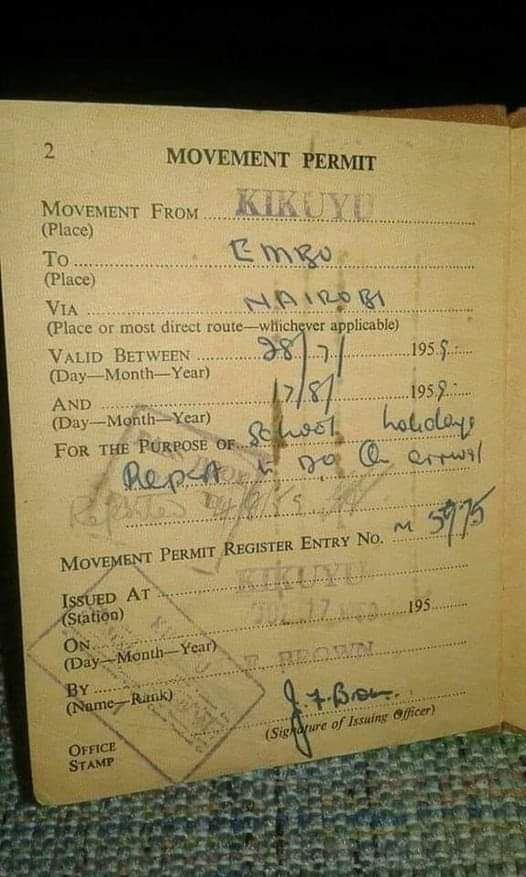 2
MOVEMENT PERMIT
MOVEMENT FROM KIKUYU
(Place)
TO EMBU
(Place)
VIA NAIROBI
(Place or most direct route—whichever applicable)
VALID BETWEEN 28/7/ 1959.
(Day—Month—Year)
AND 17/8/ 1959.
(Day—Month—Year)
FOR THE PURPOSE OF School holidays
Report to DO on arrival
Reported
MOVEMENT PERMIT REGISTER ENTRY NO. M 5975
ISSUED AT KIKUYU
(Station)
ON 195
(Day—Month—Year)
BY BROWN
(Name—Rank)
J F Brown
(Signature of Issuing Officer)
OFFICE
STAMP
KIKUYU